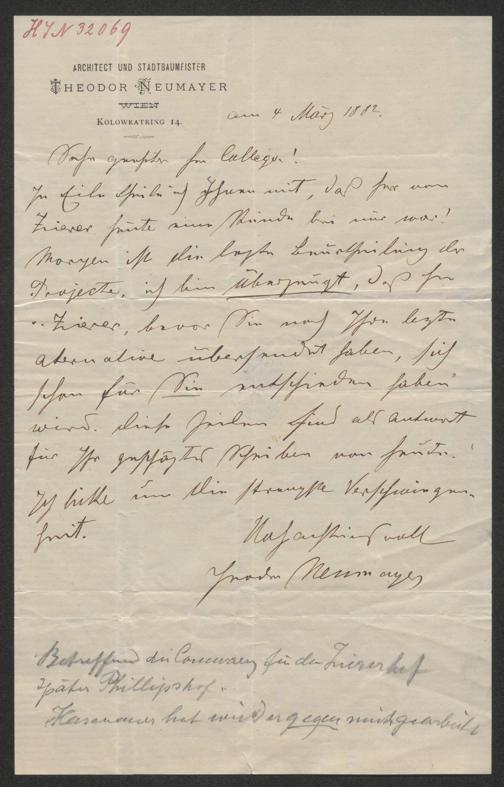 HIN 32069
ARCHITECT UND STADTBAUMEISTER
THEODOR NEUMAYER
WIEN
KOLOWRATRING 14.
am 4. März 1882.
Sehr geehrter Herr College!
In Eile theile ich Ihnen mit, daß Herr von
Zierer heute eine Stunde bei mir war!
Morgen ist die letzte Beurtheilung der
Projecte, ich bin überzeugt, daß Herr
v. Zierer, bevor Sie noch Ihre letzte
alternative übersendet haben, sich
schon für Sie entschieden haben
wird. Diese Zeilen sind als Antwort
für Ihr geschätztes Schreiben von heute.
Ich bitte um die strengste Verschwiegen-
heit.
Hochachtungsvoll
Theodor Neumayer
Betreffend die Concurrenz für den Ziererhof
später Phillipshof.
Hasenauer hat wieder gegen mich gearbeitet